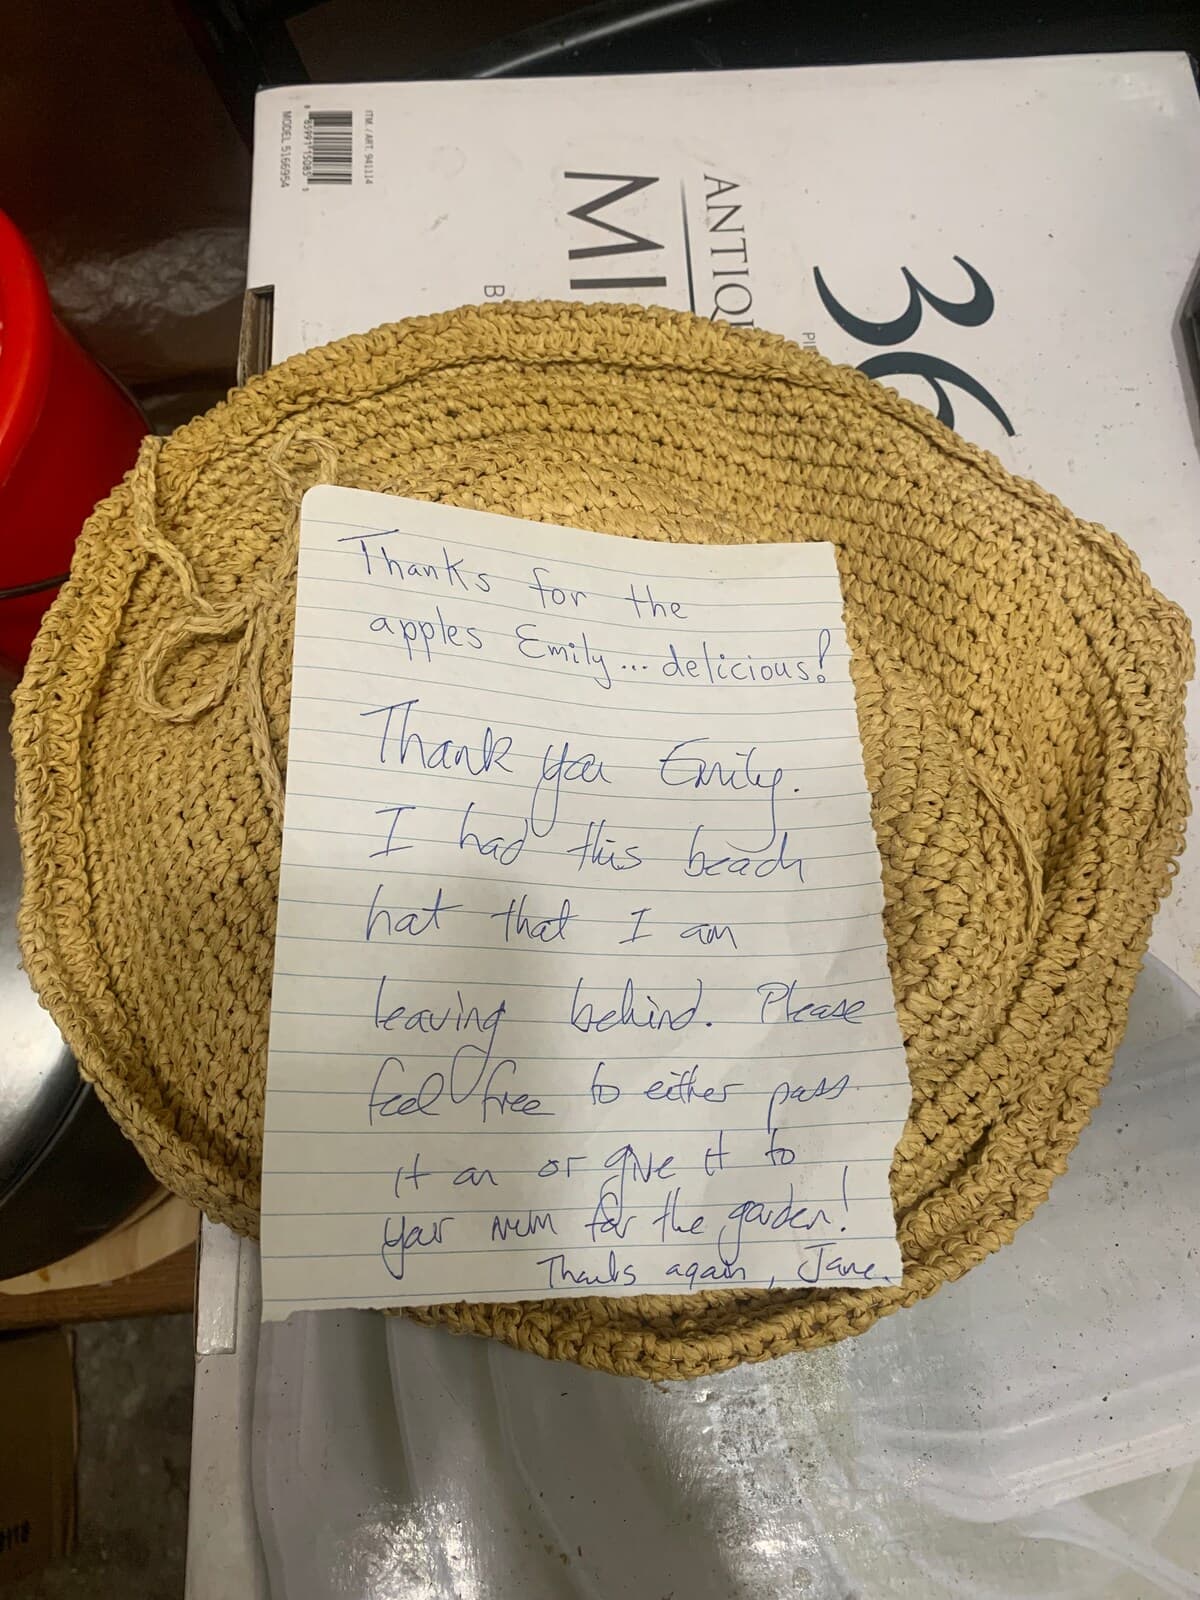 ITM. / ART. 941114
MODEL 5166954
36
ANTIQ
MI
B
Thanks for the
apples Emily... delicious!
Thank you Emily.
I had this beach
hat that I am
leaving behind. Please
feel free to either pass
it on or give it to
your mum for the garden!
Thanks again, Jane.